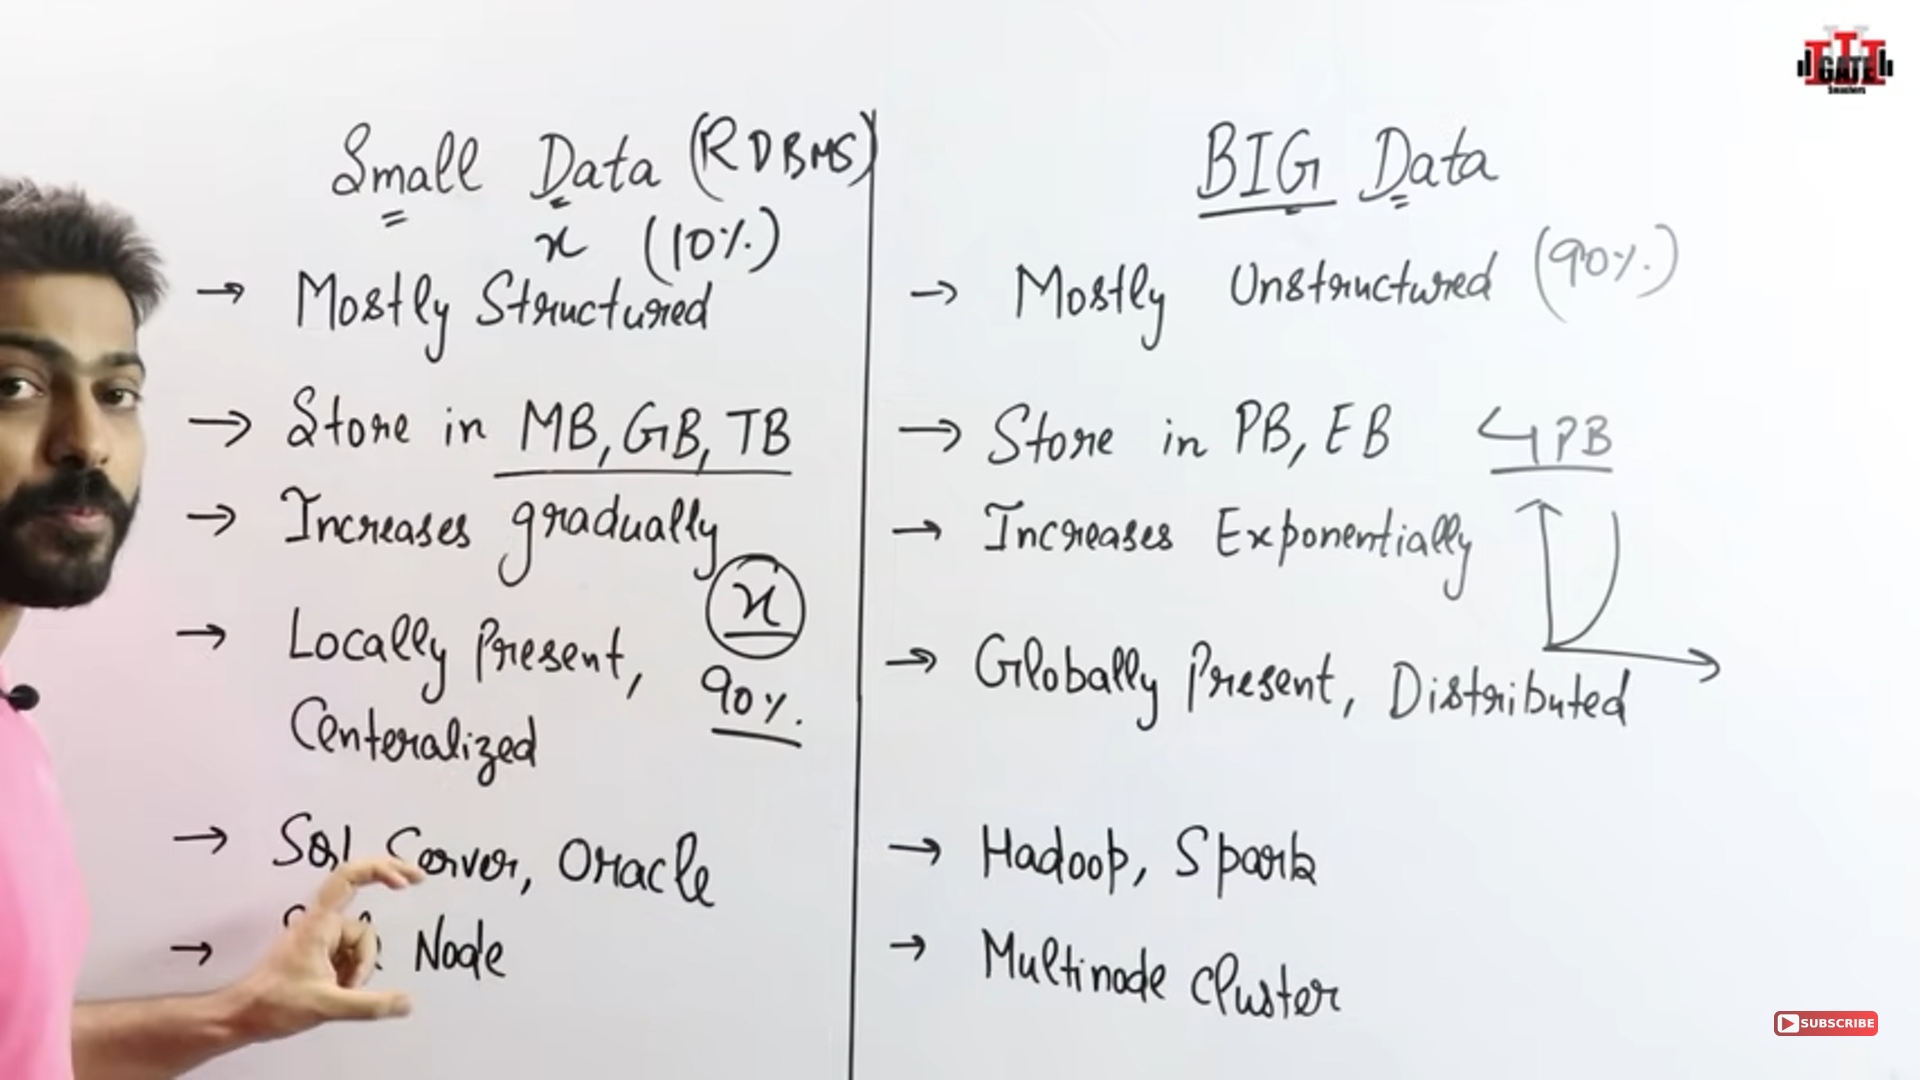 GATE
Smashers
Small Data (RDBMS)
x (10%)
→ Mostly Structured
→ Store in MB, GB, TB
→ Increases gradually
x
→ Locally Present,
90%.
Centeralized
→ Sql Server, Oracle
→ Node
BIG Data
→ Mostly Unstructured (90%.)
→ Store in PB, EB 4PB
→ Increases Exponentially
→ Globally Present, Distributed
→ Hadoop, Spark
→ Multinode Cluster
SUBSCRIBE